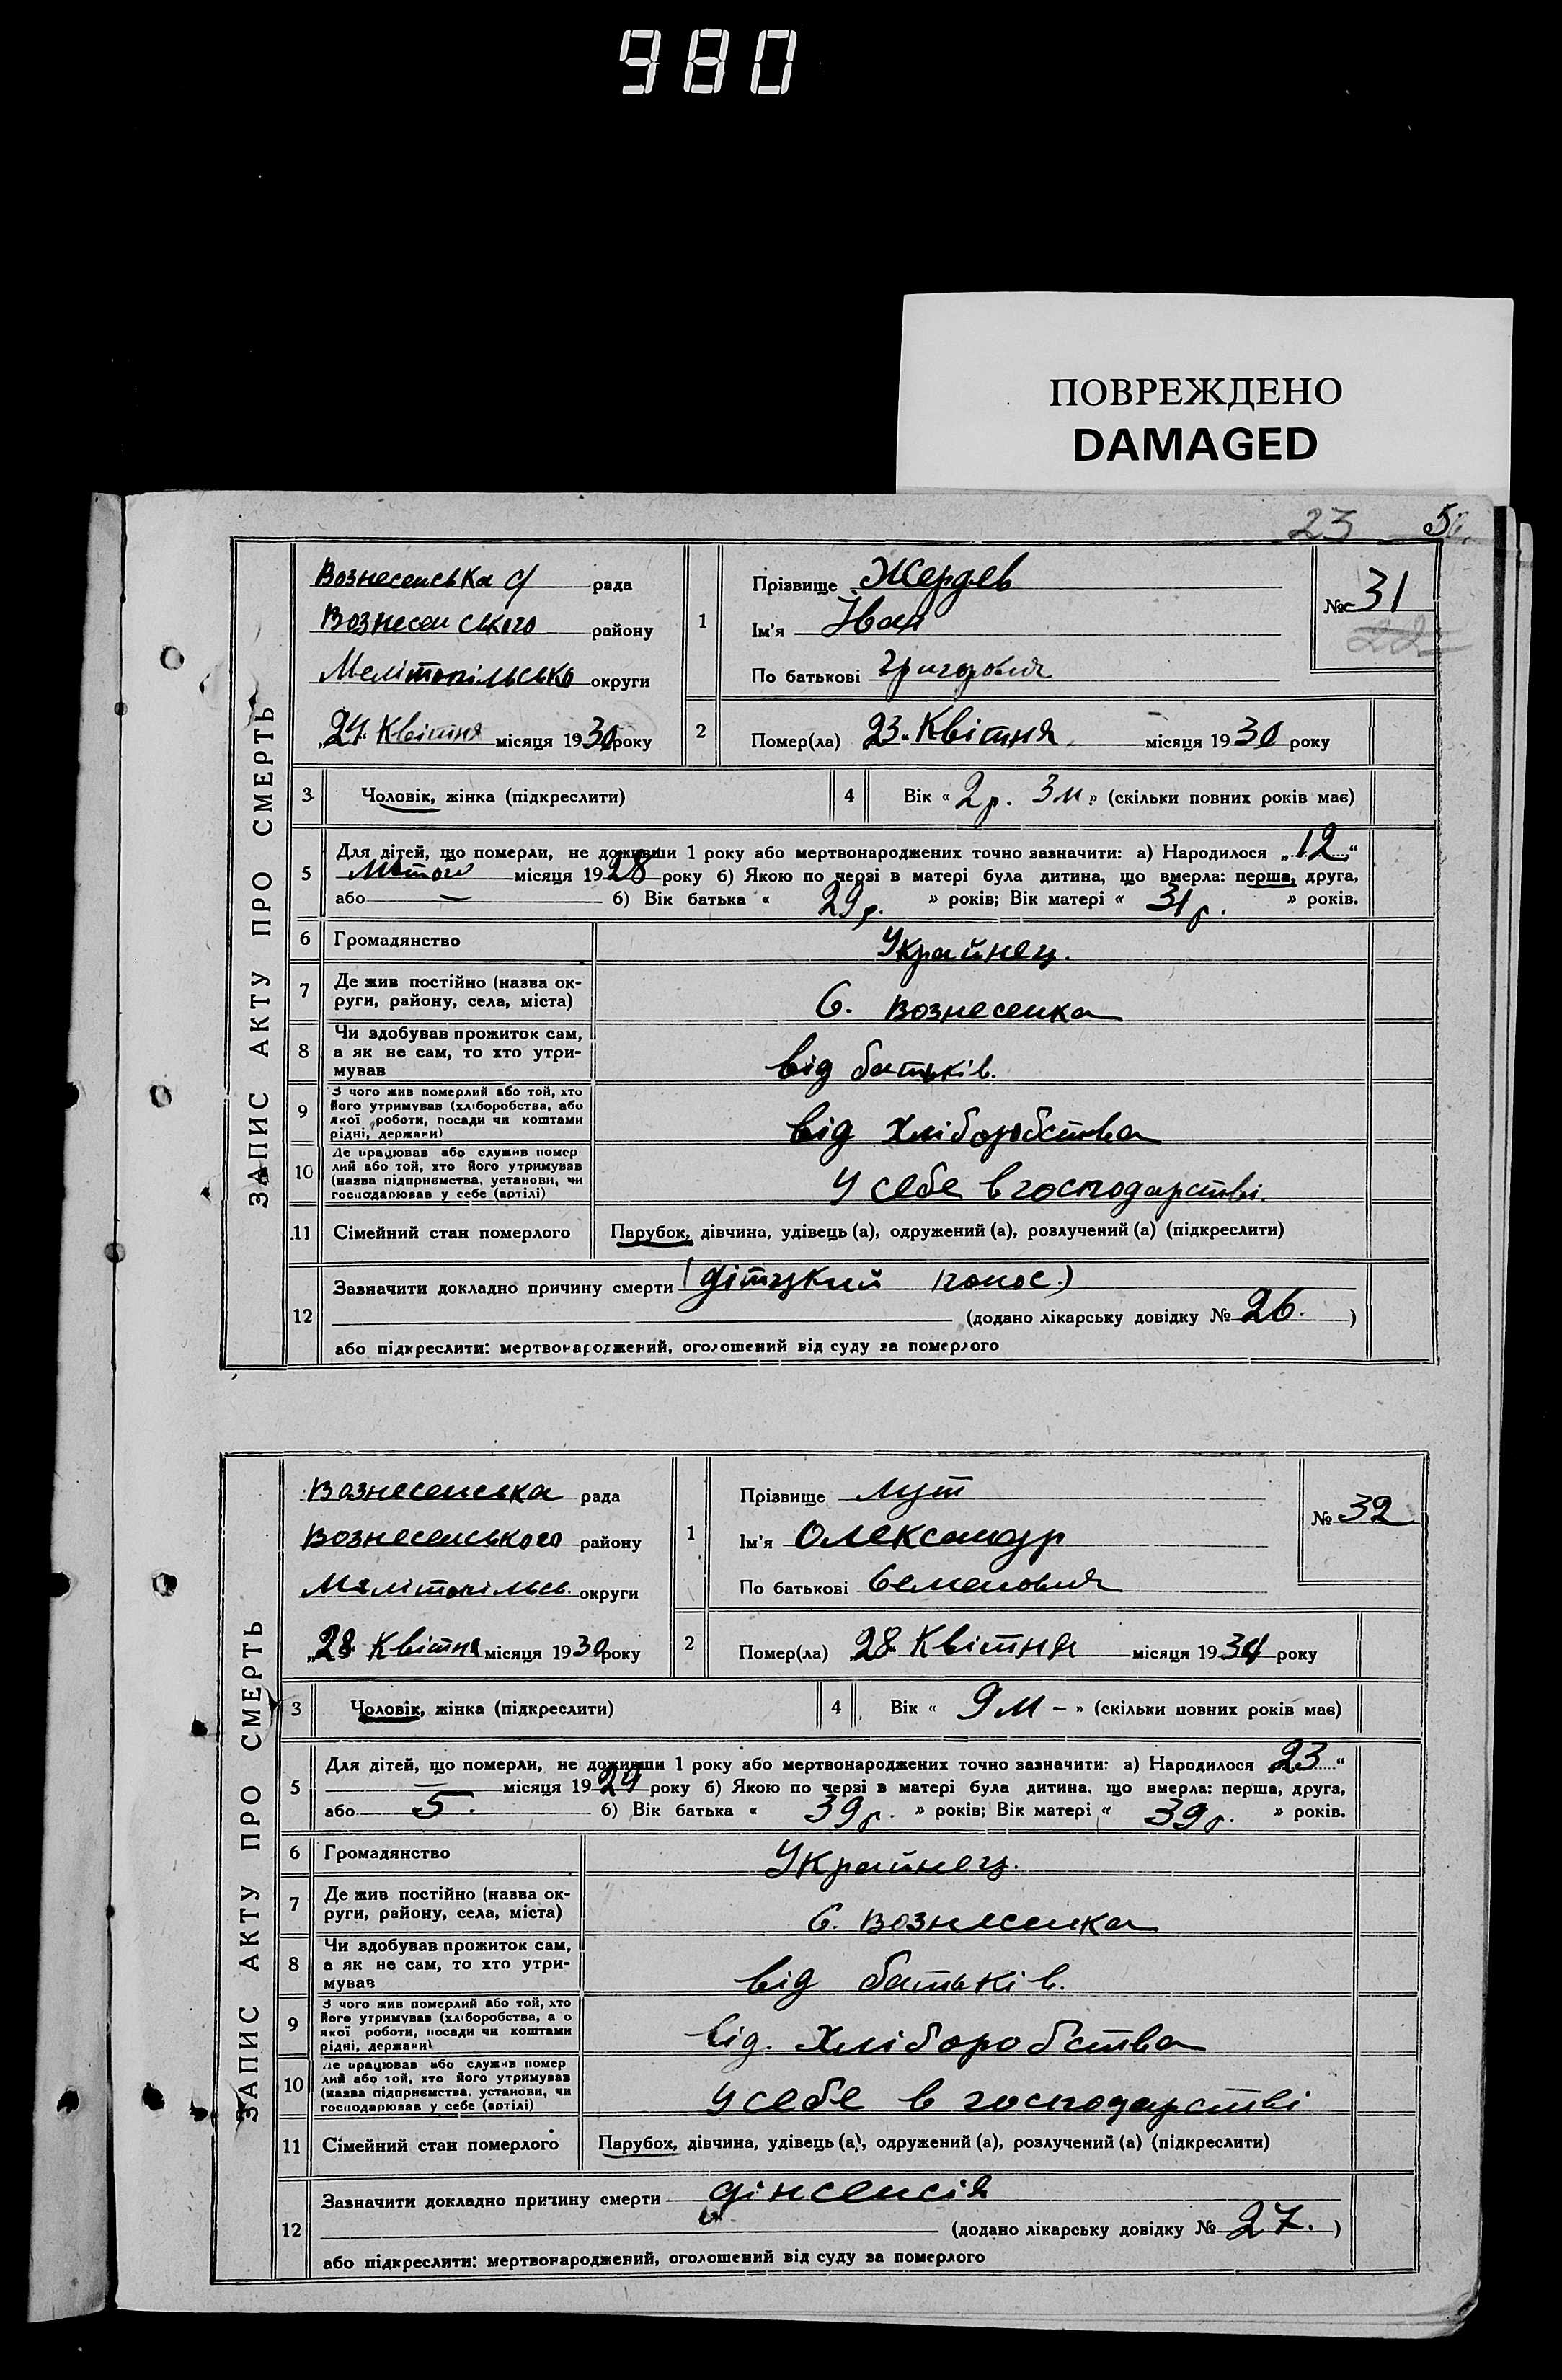 980
ПОВРЕЖДЕНО
DAMAGED
23 5
ЗАПИС АКТУ ПРО СМЕРТЬ
Вознесенська с/ рада
Вознесенського району
Мелітопільсько округи
„24 Квітня місяця 1930 року
1 Прізвище Жердев
Ім'я Іван
По батькові Григорович
№ 31
2 Помер(ла) 23 „ Квітня місяця 1930 року
3 Чоловік, жінка (підкреслити)
4 Вік « 2 р. 3 м. » (скільки повних років має)
5 Для дітей, що померли, не доживши 1 року або мертвонароджених точно зазначити: а) Народилося „12“
Лютого місяця 1928 року б) Якою по черзі в матері була дитина, що вмерла: перша, друга,
або — б) Вік батька « 29 р. » років; Вік матері « 31 р. » років.
6 Громадянство Украйнец.
7 Де жив постійно (назва ок-
руги, району, села, міста) С. Вознесенка
8 Чи здобував прожиток сам,
а як не сам, то хто утри-
мував від батьків.
9 З чого жив померлий або той, хто
його утримував (хліборобства, або
якої роботи, посади чи коштами
рідні, держави) від хліборобства
10 Де працював або служив помер
лий або той, хто його утримував
(назва підприємства, установи, чи
господарював у себе (артілі) У себе в господарстві.
11 Сімейний стан померлого Парубок, дівчина, удівець (а), одружений (а), розлучений (а) (підкреслити)
12 Зазначити докладно причину смерти (дітцкий понос.)
(додано лікарську довідку № 26. )
або підкреслити: мертвонароджений, оголошений від суду за померлого
ЗАПИС АКТУ ПРО СМЕРТЬ
Вознесенська рада
Вознесенського району
Мелітопільсь. округи
„28 Квітня місяця 1930 року
1 Прізвище Лут
Ім'я Олександр
По батькові Семенович
№ 32
2 Помер(ла) „28 Квітня місяця 193 року
3 Чоловік, жінка (підкреслити)
4 Вік « 9 м – » (скільки повних років має)
5 Для дітей, що померли, не доживши 1 року або мертвонароджених точно зазначити: а) Народилося 23 “
— місяця 1929 року б) Якою по черзі в матері була дитина, що вмерла: перша, друга,
або 5. б) Вік батька « 39 р. » років; Вік матері « 39 р. » років.
6 Громадянство Украйнец.
7 Де жив постійно (назва ок-
руги, району, села, міста) С. Вознесенка
8 Чи здобував прожиток сам,
а як не сам, то хто утри-
мував від батьків.
9 З чого жив померлий або той, хто
його утримував (хліборобства, а о
якої роботи, посади чи коштами
рідні, держави) від. хліборобства
10 Де працював або служив помер
лий або той, хто його утримував
(назва підприємства, установи, чи
господарював у себе (артілі) У себе в господарстві
11 Сімейний стан померлого Парубох, дівчина, удівець (а), одружений (а), розлучений (а) (підкреслити)
12 Зазначити докладно причину смерти дінсенсія
(додано лікарську довідку № 27. )
або підкреслити: мертвонароджений, оголошений від суду за померлого